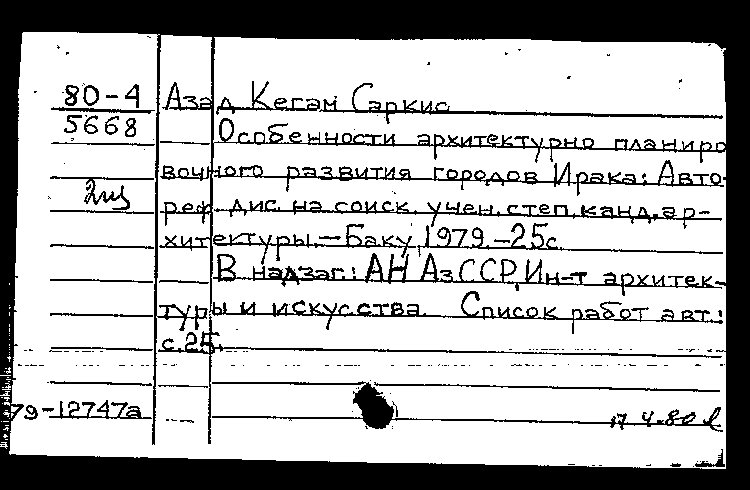 80-4 Азад Кегам Саркис
5668 Особенности архитектурно планиро
вочного развития городов Ирака: Авто-
2из
реф. дис. на соиск. учен. степ. канд. ар-
хитектуры.—Баку, 1979.-25с.
В надзаг.: АН АзССР, Ин-т архитек-
туры и искусства. Список работ авт.:
с.25.
79-12747а
17.4.80